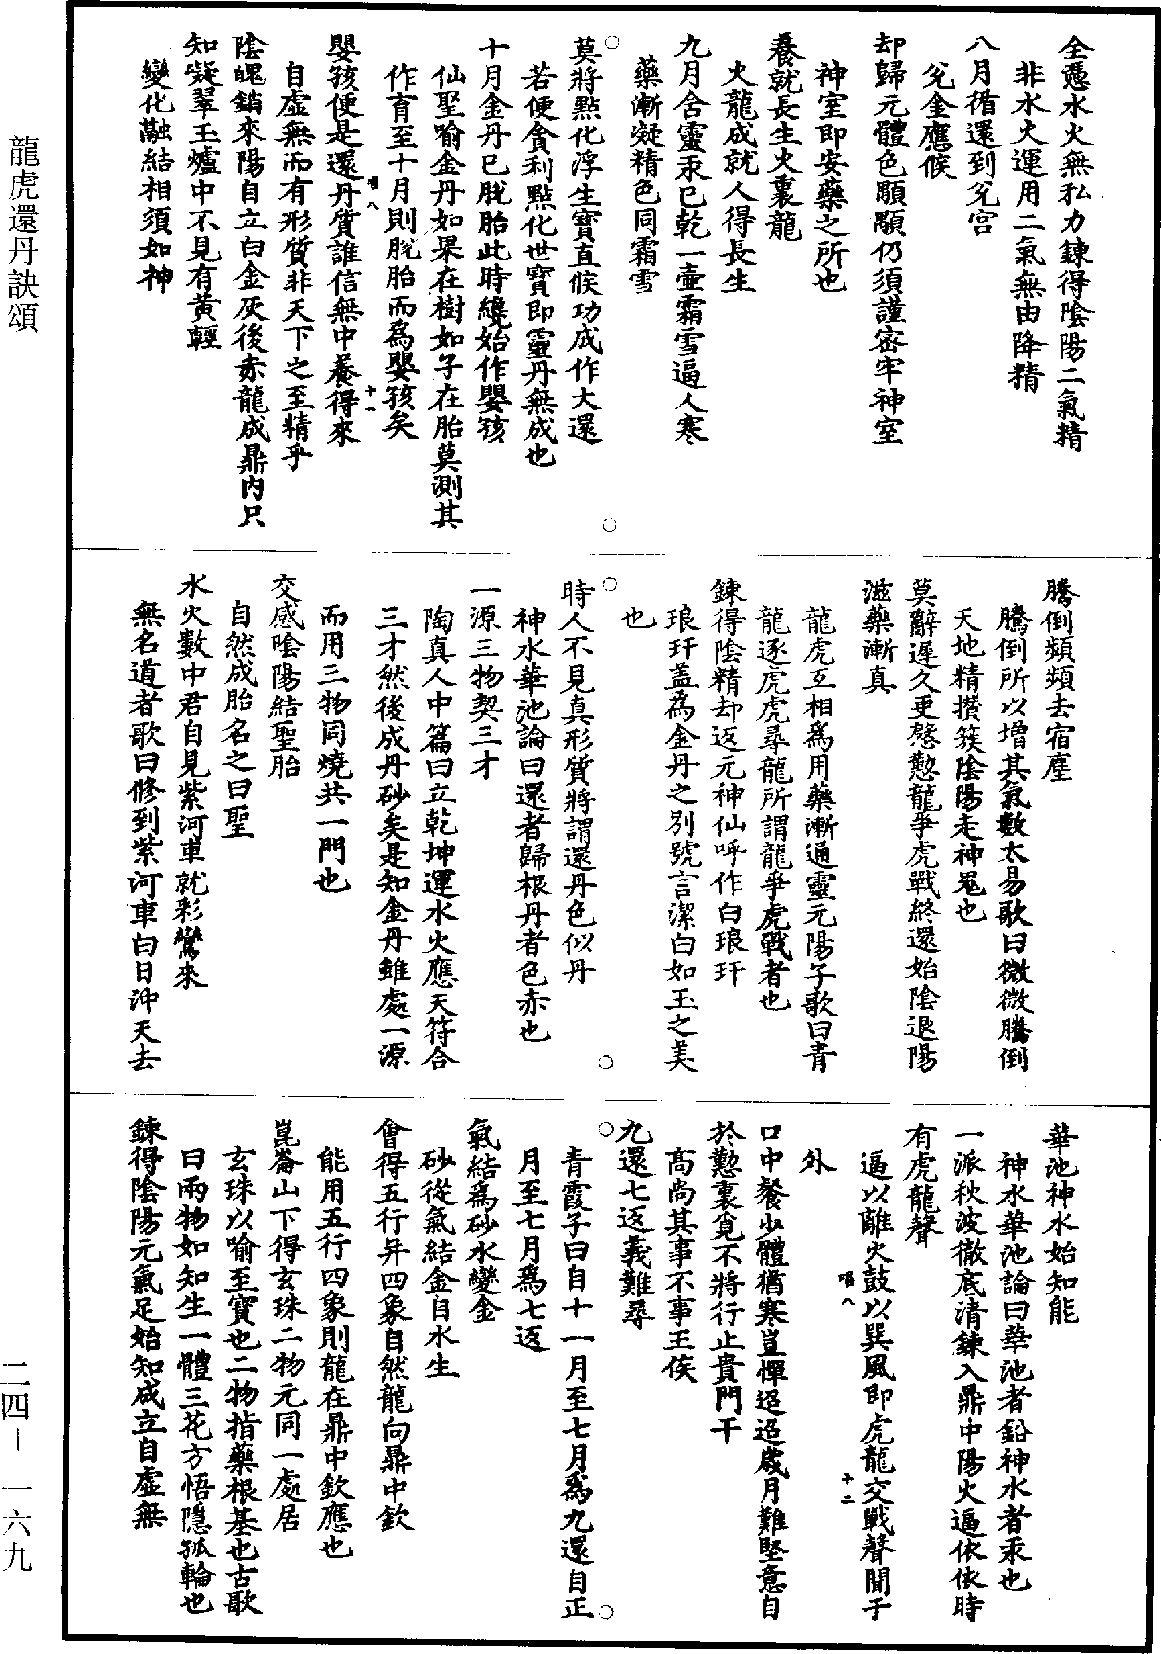 全憑水火無私力鍊得陰陽二氣精
非水火運用二氣無由降精
八月循還到兌宮
兌金應候
却歸元體色顒顒仍須謹密牢神室
神室即安藥之所也
養就長生火裏龍
火龍成就人得長生
九月含靈汞已乾一壺霜雪逼人寒
藥漸凝精色同霜雪
○
○
莫將點化浮生寶直候功成作大還
若便貪利點化世寶即靈丹無成也
十月金丹已脫胎此時纔始作嬰孩
仙聖喻金丹如果在樹如子在胎莫測其
作育至十月則脫胎而爲嬰孩矣
唱八
十一
嬰孩便是還丹質誰信無中養得來
自虛無而有形質非天下之至精乎
陰魄銷來陽自立白金灰後赤龍成鼎內只
知凝翠玉爐中不見有黃輕
變化融結相須如神
騰倒頻頻去宿塵
騰倒所以增其氣數太易歌曰微微騰倒
天地精攢簇陰陽走神鬼也
莫辭遲久更慇懃龍爭虎戰終還始陰退陽
滋藥漸真
龍虎互相爲用藥漸通靈元陽子歌曰青
龍逐虎虎尋龍所謂龍爭虎戰者也
鍊得陰精却返元神仙呼作白琅玕
琅玕蓋爲金丹之別號言潔白如玉之美
也
○
○
時人不見真形質將謂還丹色似丹
神水華池論曰還者歸根丹者色赤也
一源三物契三才
陶真人中篇曰立乾坤運水火應天符合
三才然後成丹砂矣是知金丹雖處一源
而用三物同燒共一門也
交感陰陽結聖胎
自然成胎名之曰聖
水火數中君自見紫河車就彩鸞來
無名道者歌曰修到紫河車白日沖天去
華池神水始知能
神水華池論曰華池者鉛神水者汞也
一派秋波徹底清鍊入鼎中陽火逼依依時
有虎龍聲
逼以離火鼓以巽風即虎龍交戰聲聞于
外
唱八
十二
口中餐少體猶寒豈憚迢迢歲月難堅意自
於懃裏覓不將行止貴門干
高尚其事不事王侯
九還七返義難尋
○
○
青霞子曰自十一月至七月爲九還自正
月至七月爲七返
氣結爲砂水變金
砂從氣結金自水生
會得五行并四象自然龍向鼎中欽
能用五行四象則龍在鼎中欽應也
崑崙山下得玄珠二物元同一處居
玄珠以喻至寶也二物指藥根基也古歌
曰兩物如知生一體三花方悟隱孤輪也
鍊得陰陽元氣足始知成立自虛無
龍虎還丹訣頌
二四－一六九